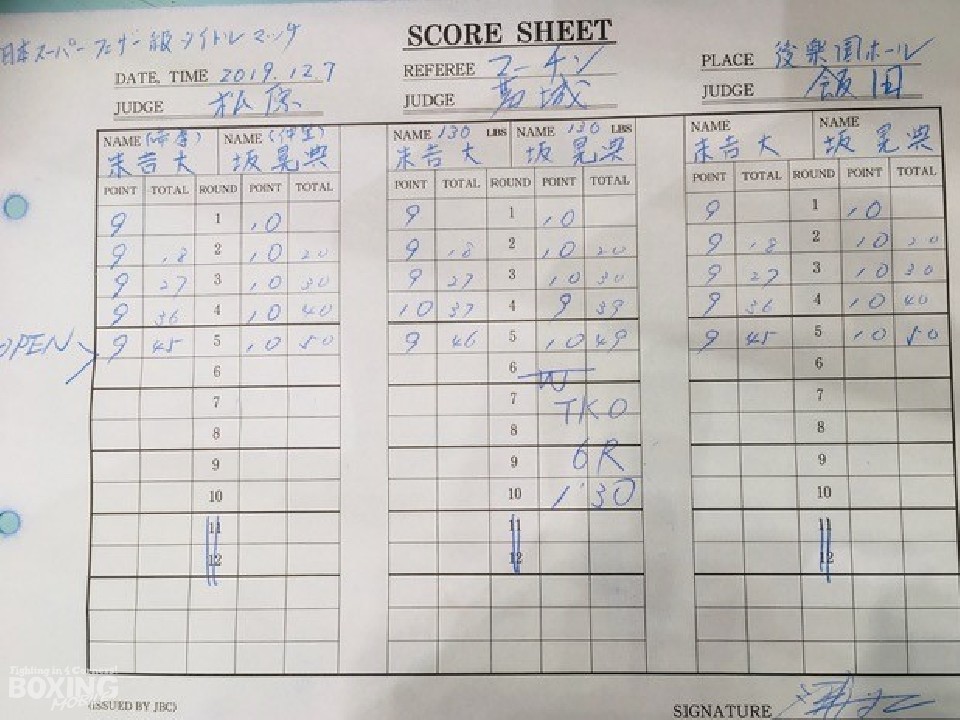 日本スーパーフェザー級タイトルマッチ
SCORE SHEET
DATE, TIME 2019.12.7
REFEREE マーチン
PLACE 後楽園ホール
JUDGE 松原
JUDGE 葛城
JUDGE 飯田
NAME (帝拳) NAME (伊豆)
NAME 130 LBS NAME 130 LBS
NAME NAME
末吉 大 坂 晃典
末吉 大 坂 晃典
末吉 大 坂 晃典
POINT TOTAL ROUND POINT TOTAL
POINT TOTAL ROUND POINT TOTAL
POINT TOTAL ROUND POINT TOTAL
9 1 10
9 1 10
9 1 10
9 18 2 10 20
9 18 2 10 20
9 18 2 10 20
9 27 3 10 30
9 27 3 10 30
9 27 3 10 30
9 36 4 10 40
10 37 4 9 39
9 36 4 10 40
OPEN 9 45 5 10 50
9 46 5 10 49
9 45 5 10 50
6
6 W
6
7
7 TKO
7
8
8
8
9
9 6R
9
10
10 1'30
10
11
11
11
12
12
12
Fighting in 4 Corners!
BOXING
MOBILE
(ISSUED BY JBC)
SIGNATURE